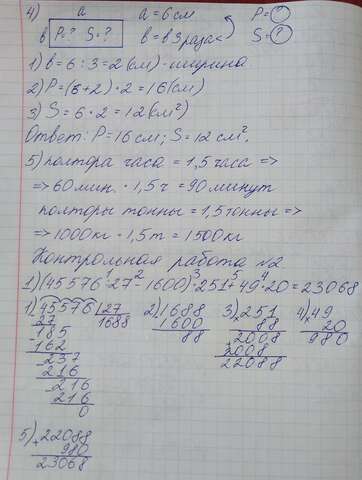 4) a a = 6 см P = ?
в P=? S=? в = в 3 раза < S = ?
1) в = 6 : 3 = 2 (см) - ширина
2) P = (6+2) · 2 = 16 (см)
3) S = 6 · 2 = 12 (см²)
Ответ: P = 16 см; S = 12 см².
5) полтора часа = 1,5 часа =>
=> 60 мин. · 1,5 ч = 90 минут
полторы тонны = 1,5 тонны =>
=> 1000 кг · 1,5 т = 1500 кг
Контрольная работа №2
1) (45576 : 27 - 1600) · 251 + 49 · 20 = 23068
1) 45576 | 27 2) 1688 3) 251 4) 49
27 1688 1600 88 20
185 88 2008 980
162 2008
237 22088
216
216
216
0
5) 22088
+ 980
23068